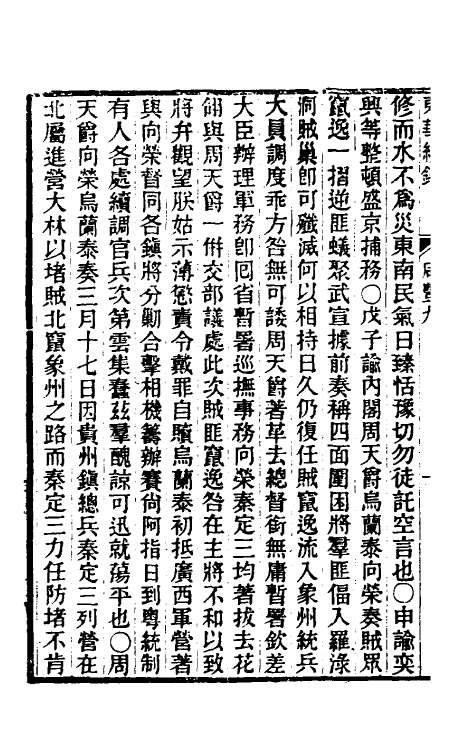 東華續錄 咸豐九
修而水不爲災東南民氣日臻恬豫切勿徒託空言也○申諭奕
興等整頓盛京捕務○戊子諭內閣周天爵烏蘭泰向榮奏賊眾
竄逸一摺逆匪蟻聚武宣據前奏稱四面圍困將羣匪偪入羅淥
洞賊巢卽可殲滅何以相持日久仍復任賊竄逸流入象州統兵
大員調度乖方咎無可諉周天爵著革去總督銜無庸暫署欽差
大臣辦理軍務卽囘省暫署巡撫事務向榮秦定三均著拔去花
翎與周天爵一倂交部議處此次賊匪竄逸咎在主將不和以致
將弁觀望朕姑示薄懲責令戴罪自贖烏蘭泰初抵廣西軍營著
與向榮督同各鎭將分勦合擊相機籌辦賽尙阿指日到粵統制
有人各處續調官兵次第雲集蠢玆羣醜諒可迅就蕩平也○周
天爵向榮烏蘭泰奏三月十七日因貴州鎭總兵秦定三列營在
北屬進營大林以堵賊北竄象州之路而秦定三力任防堵不肯